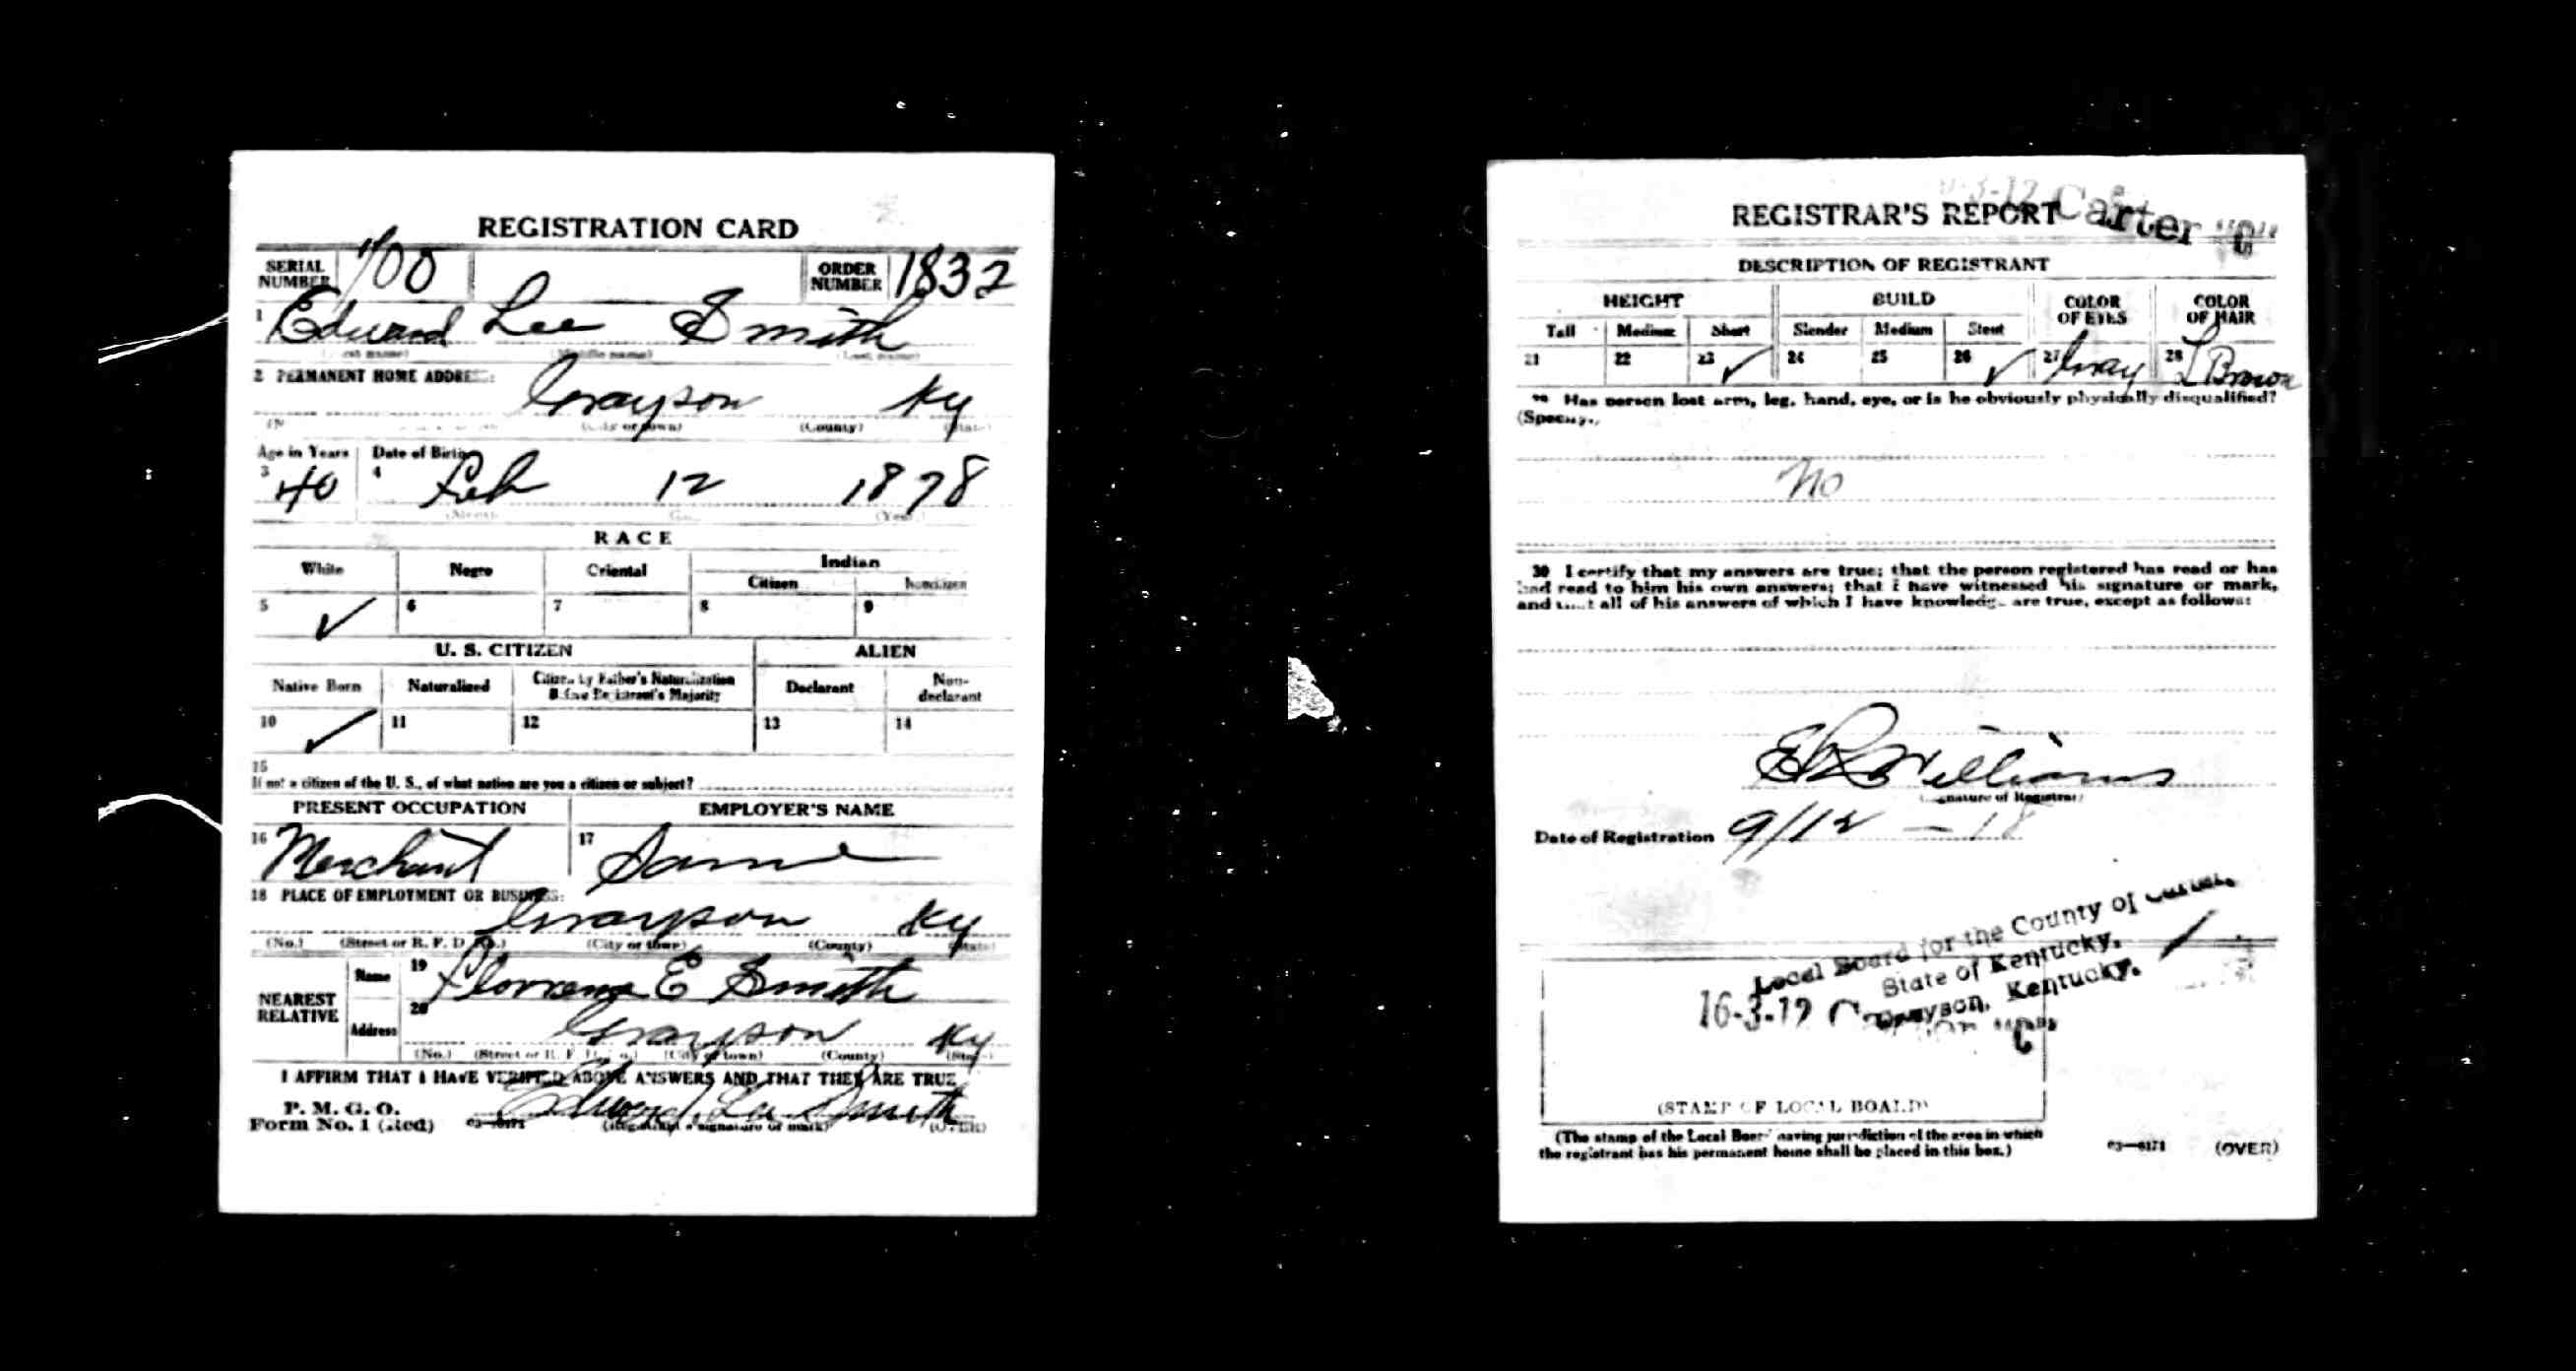 REGISTRATION CARD
SERIAL NUMBER 700 ORDER NUMBER 1832
1 Edward Lee Smith
(Middle name) (Last name)
2 PERMANENT HOME ADDRESS:
Grayson Ky
(City or town) (County) (State)
Age in Years Date of Birth
3 40 4 Feb 12 1878
(Month) (Year)
RACE
White Negro Oriental Indian
Citizen Noncitizen
5 ✓ 6 7 8 9
U. S. CITIZEN ALIEN
Native Born Naturalized Citizen by Father's Naturalization Before Registrant's Majority Declarant Non-declarant
10 ✓ 11 12 13 14
15
If not a citizen of the U. S., of what nation are you a citizen or subject?
PRESENT OCCUPATION EMPLOYER'S NAME
16 Merchant 17 Same
18 PLACE OF EMPLOYMENT OR BUSINESS:
Grayson Ky
(No.) (Street or R. F. D. No.) (City or town) (County) (State)
NEAREST RELATIVE Name 19 E Smith
Address 20 Grayson Ky
(No.) (Street or R. F. D. No.) (City or town) (County) (State)
I AFFIRM THAT I HAVE VERIFIED ABOVE ANSWERS AND THAT THEY ARE TRUE
P. M. G. O.
Form No. 1 (Red) Edward Lee Smith
03—6171 (Registrant's signature or mark) (OVER)
REGISTRAR'S REPORT Carter "C"
DESCRIPTION OF REGISTRANT
HEIGHT BUILD COLOR OF EYES COLOR OF HAIR
Tall Medium Short Slender Medium Stout
21 22 23 ✓ 24 25 26 ✓ 27 Gray 28 L Brown
29 Has person lost arm, leg, hand, eye, or is he obviously physically disqualified?
(Specify.)
No
30 I certify that my answers are true; that the person registered has read or has
had read to him his own answers; that I have witnessed his signature or mark,
and that all of his answers of which I have knowledge are true, except as follows:
Williams
(Signature of Registrar)
Date of Registration 9/12 — 18
Local Board for the County of Carter,
State of Kentucky.
Grayson, Kentucky.
(STAMP OF LOCAL BOARD)
(The stamp of the Local Board having jurisdiction of the area in which
the registrant has his permanent home shall be placed in this box.)
03—6171 (OVER)